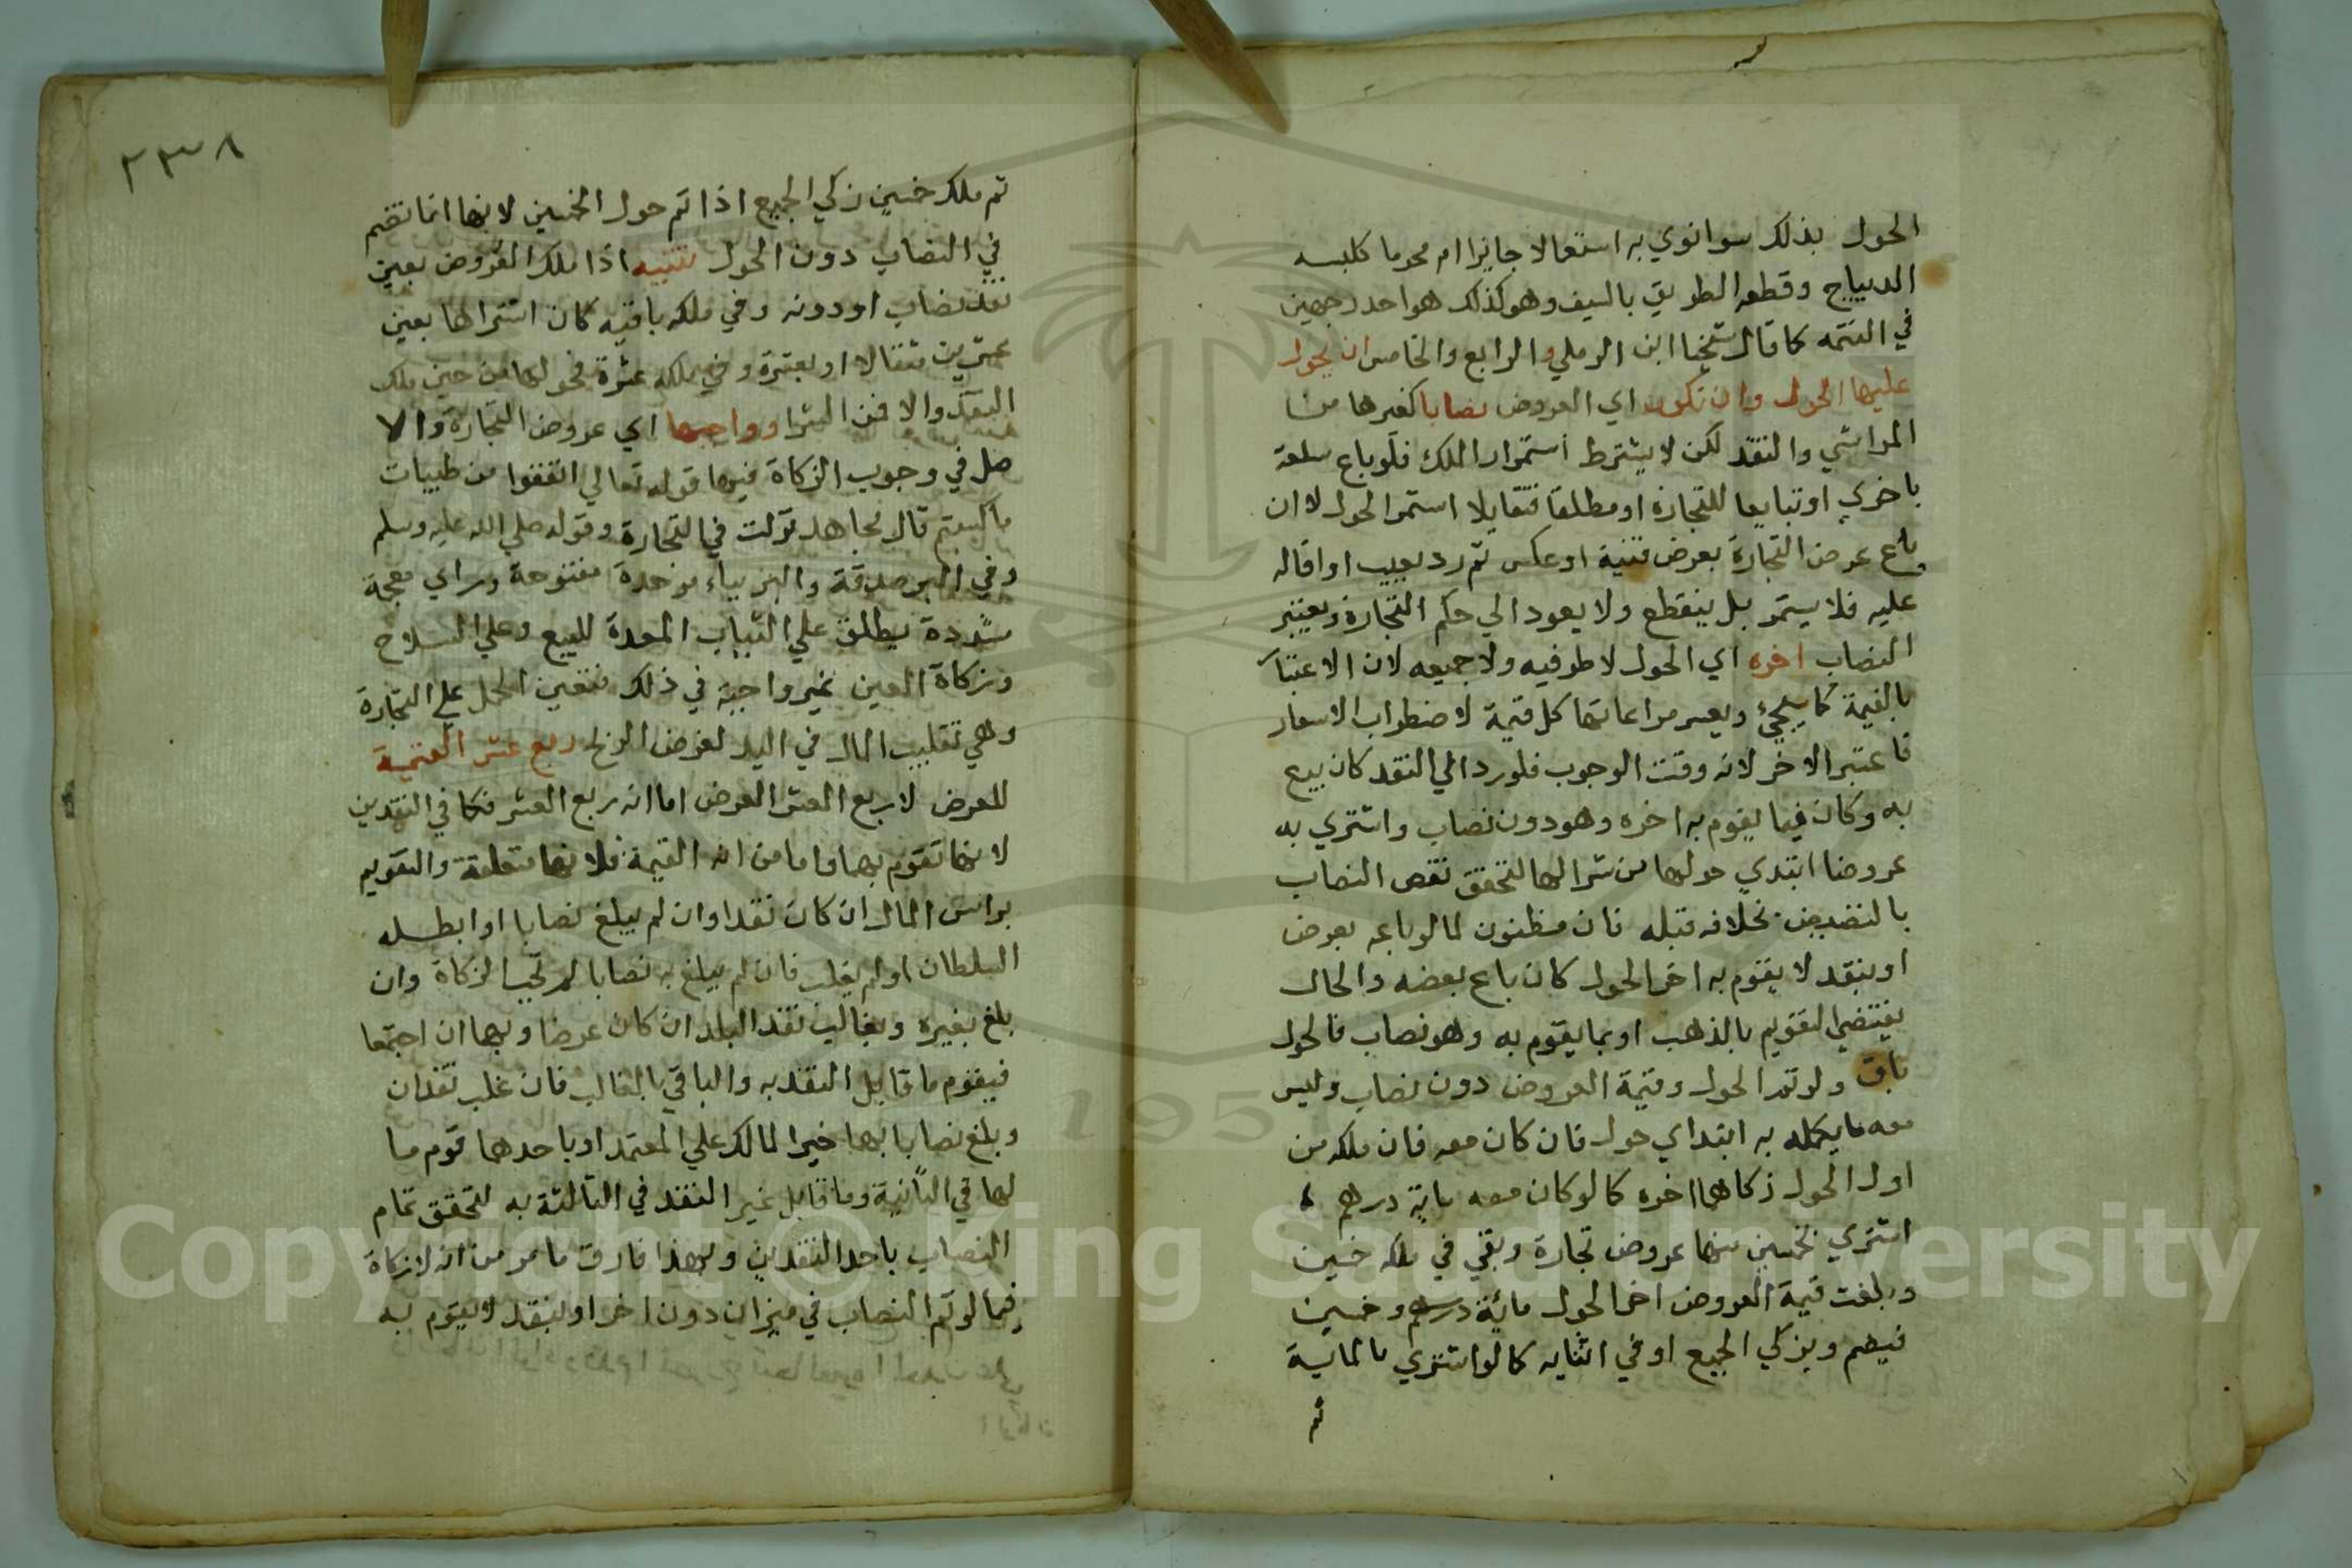 الحول بذلك سوا نوي به استعمالا جايزا ام محرما كلبسه
الديباج وقطعه الطريق بالسيف وهو كذلك هو احد وجهين
في التتمه كما قال شيخنا ابن الرملي والرابع والخامس ان يحول
عليها الحول وان تكون اي العروض نصابا كغيرها من
المواشي والنقد لكن لا يشترط استمرار الملك فلو باع سلعة
باخري او تبايعا للتجارة او مطلقا فتقايلا استمر الحول لا ان
باع عرض التجارة بعرض قنية او عكس ثم رد بعيب او اقاله
عليه فلا يستمر بل ينقطع ولا يعود الي حكم التجارة ويعتبر
النصاب اخره اي الحول لا طرفيه ولا جميعه لان الاعتبار
بالقيمة كما سيجيء ويعسر مراعاتها كل قيمة لاضطراب الاسعار
فاعتبر الاخر لانه وقت الوجوب فلو رد الي النقد كان بيع
به وكان فيما يقوم به اخره وهو دون نصاب واشتري به
عروضا ابتدي حولها من شرائها لتحقق نقص النصاب
بالتنضيض بخلافه قبله فان مظنون لما لو باعه بعرض
او بنقد لا يقوم به اخر الحول كان باع بعضه والحال
يقتضي التقويم بالذهب او بما يقوم به وهو نصاب فالحول
باق ولو تم الحول وقيمة العروض دون نصاب وليس
معه ما يكمله به ابتداي حول فان كان معه فان ملكه من
اول الحول زكاهما اخره كما لو كان معه ماية درهم
اشتري بخمسين منها عروض تجارة وبقي في ملكه خمسين
وبلغت قيمة العروض اخر الحول مائة درهم وخمسين
فيضم ويزكي الجميع او في اثنايه كما لو اشتري بالماية
ثم
٢٣٨
ثم ملك خمسين زكي الجميع اذا تم حول الخمسين لانها انما تضم
في النصاب دون الحول تنبيه اذا ملك العروض بعين
نقد نصاب او دونه وفي ملكه باقيه كان اشتراها بعين
عشرين مثقالا او بعشرة وفي ملكه عشرة فحولها من حين ملك
النقد والا فمن الشرا وواجبها اي عروض التجارة والا
صل في وجوب الزكاة فيها قوله تعالي انفقوا من طيبات
ما كسبتم قال مجاهد نزلت في التجارة وقوله صلي الله عليه وسلم
وفي البز صدقة والبز بباء موحدة مفتوحة وزاي معجمة
مشددة يطلق علي الثياب المعدة للبيع وعلي السلاح
وزكاة العين غير واجبة في ذلك فتعين الحمل علي التجارة
وهي تقليب المال في اليد لغرض الربح ربع عشر القيمة
للعرض لا ربع العشر العرض اما انه ربع العشر فكما في النقدين
لانها تقوم بهما واما من انه القيمة فلانها متعلقة والتقويم
براس المال ان كان نقدا وان لم يبلغ نصابا او ابطله
السلطان او لم يغلب فان لم يبلغ به نصابا لم تجب الزكاة وان
بلغ بغيره وبغالب نقد البلد ان كان عرضا وبهما ان اجتمعا
فيقوم ما قابل النقد به والباقي بالغالب فان غلب نقدان
وبلغ نصابا بهما خير المالك علي المعتمد او باحدهما قوم ما
لها في الثانية وما قابل غير النقد في الثالثة به لتحقق تمام
النصاب باحد النقدين وبهذا فارق ما مر من انه لا زكاة
فيما لو تم النصاب في ميزان دون اخر او بنقد لا يقوم به
Copyright © King Saud University
195